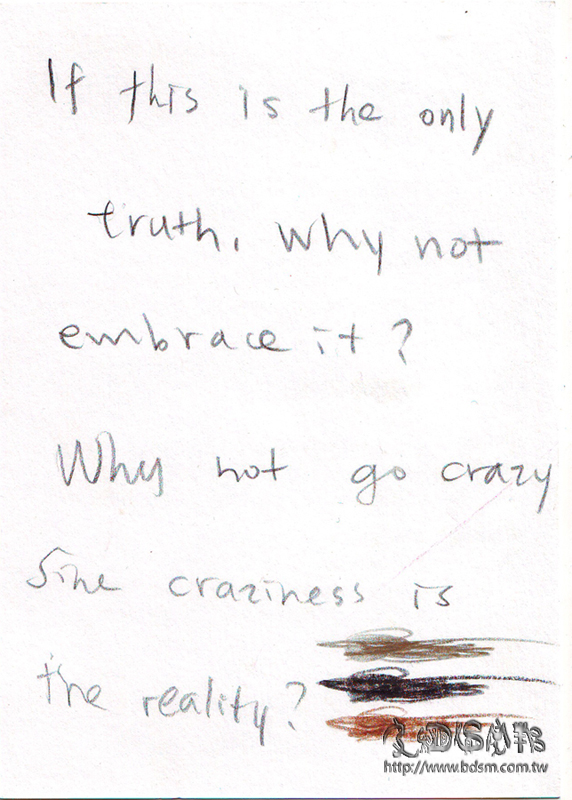 If this is the only
truth, why not
embrace it?
Why not go crazy
Sine craziness is
the reality?
http://www.bdsm.com.tw